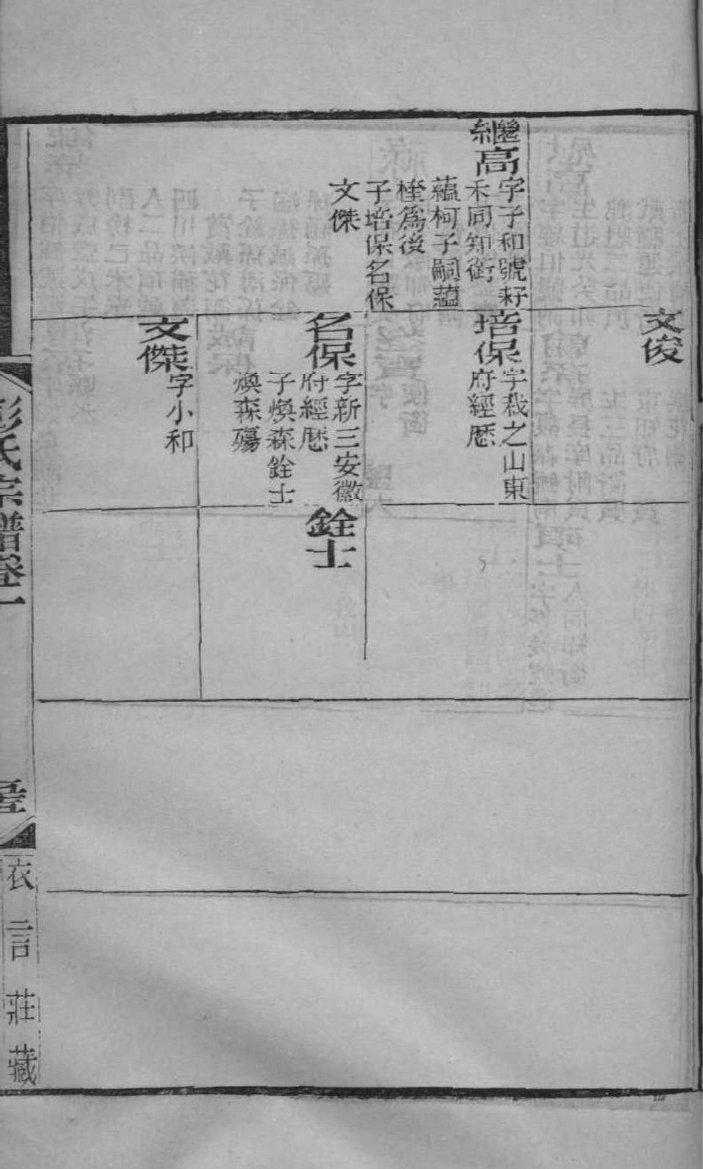 繼高
字子和號耔
禾同知銜
蘊柯子嗣蘊
桂爲後
子培保名保
文傑
文俊
培保
字栽之山東
府經歷
名保
字新三安徽
府經歷
子煥森銓士
煥森殤
文傑
字小和
銓士
彭氏宗譜卷一
衣言莊藏